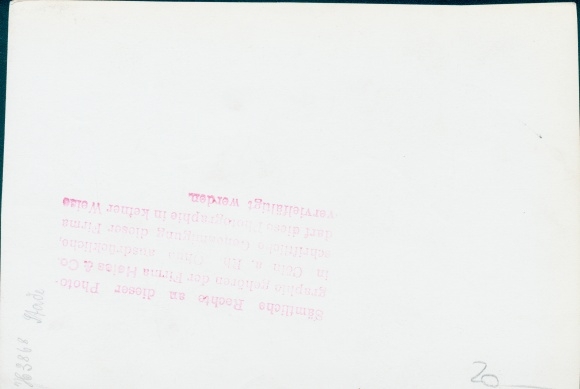 Sämtliche Rechte an dieser Photo-
graphie gehören der Firma Heiss & Co.
in Cöln a. Rh. Ohne ausdrückliche,
schriftliche Genehmigung dieser Firma
darf diese Photographie in keiner Weise
vervielfältigt werden.
20